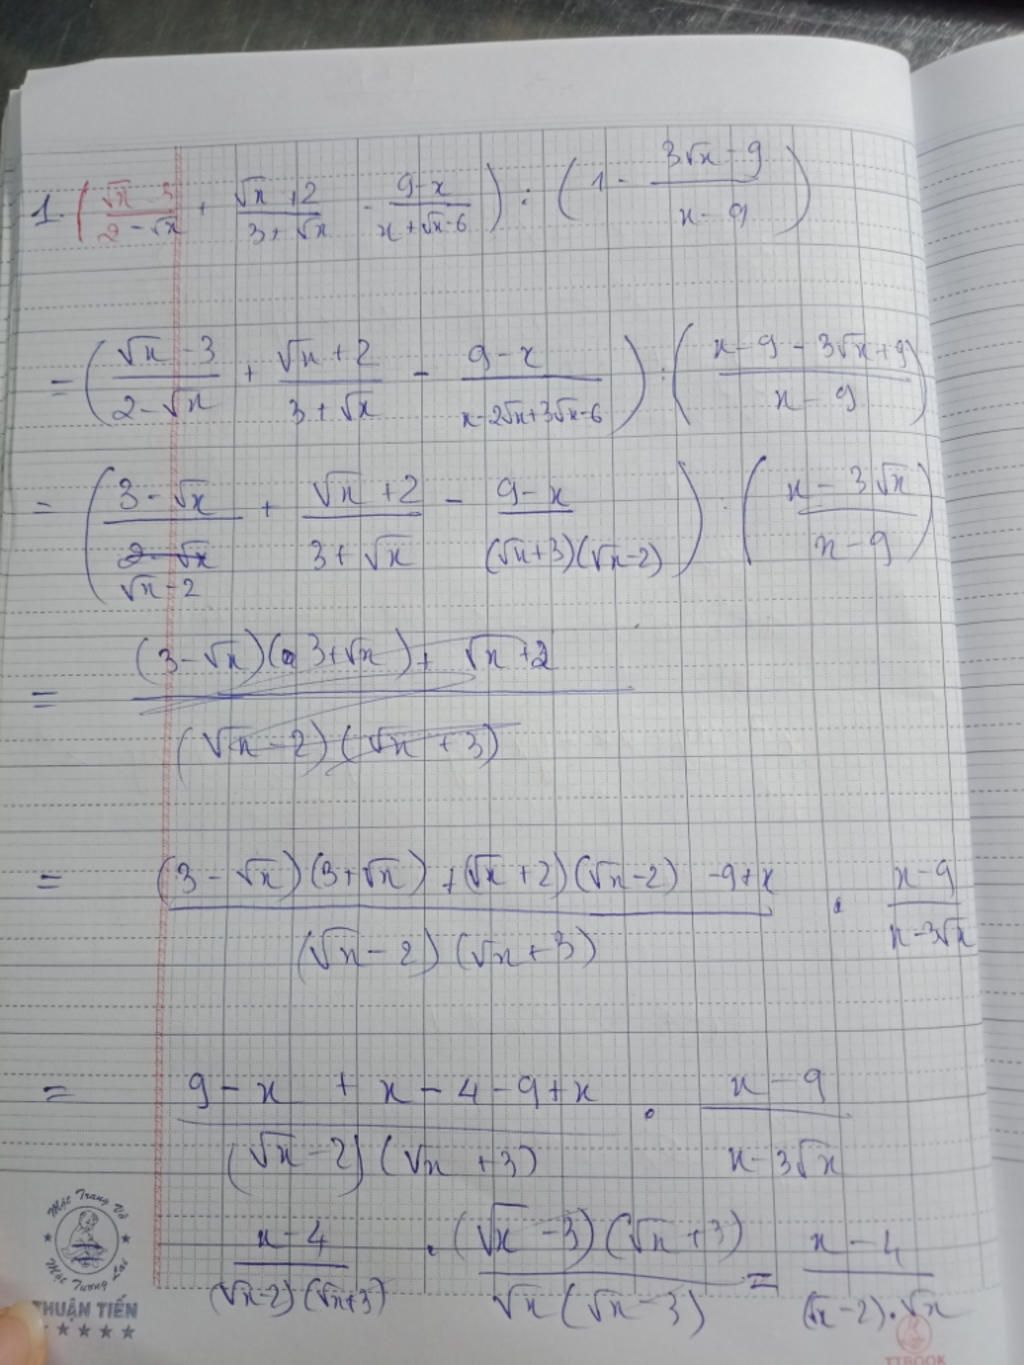 1. ( (√x - 3)/(2 - √x) + (√x + 2)/(3 + √x) - (9 - x)/(x + √x - 6) ) : ( 1 - (3√x - 9)/(x - 9) )
= ( (√x - 3)/(2 - √x) + (√x + 2)/(3 + √x) - (9 - x)/(x - 2√x + 3√x - 6) ) : ( (x - 9 - 3√x + 9)/(x - 9) )
= ( (3 - √x)/(√x - 2) + (√x + 2)/(3 + √x) - (9 - x)/((√x + 3)(√x - 2)) ) : ( (x - 3√x)/(x - 9) )
= ((3 - √x)(3 + √x) + √x + 2)/((√x - 2)(√x + 3))
= ((3 - √x)(3 + √x) + (√x + 2)(√x - 2) - 9 + x)/((√x - 2)(√x + 3)) . (x - 9)/(x - 3√x)
= (9 - x + x - 4 - 9 + x)/((√x - 2)(√x + 3)) . (x - 9)/(x - 3√x)
(x - 4)/((√x - 2)(√x + 3)) . ((√x - 3)(√x + 3))/(√x(√x - 3)) = (x - 4)/((√x - 2).√x)
Một Trang Vở
Một Tương Lai
THUẬN TIẾN
TTBOOK